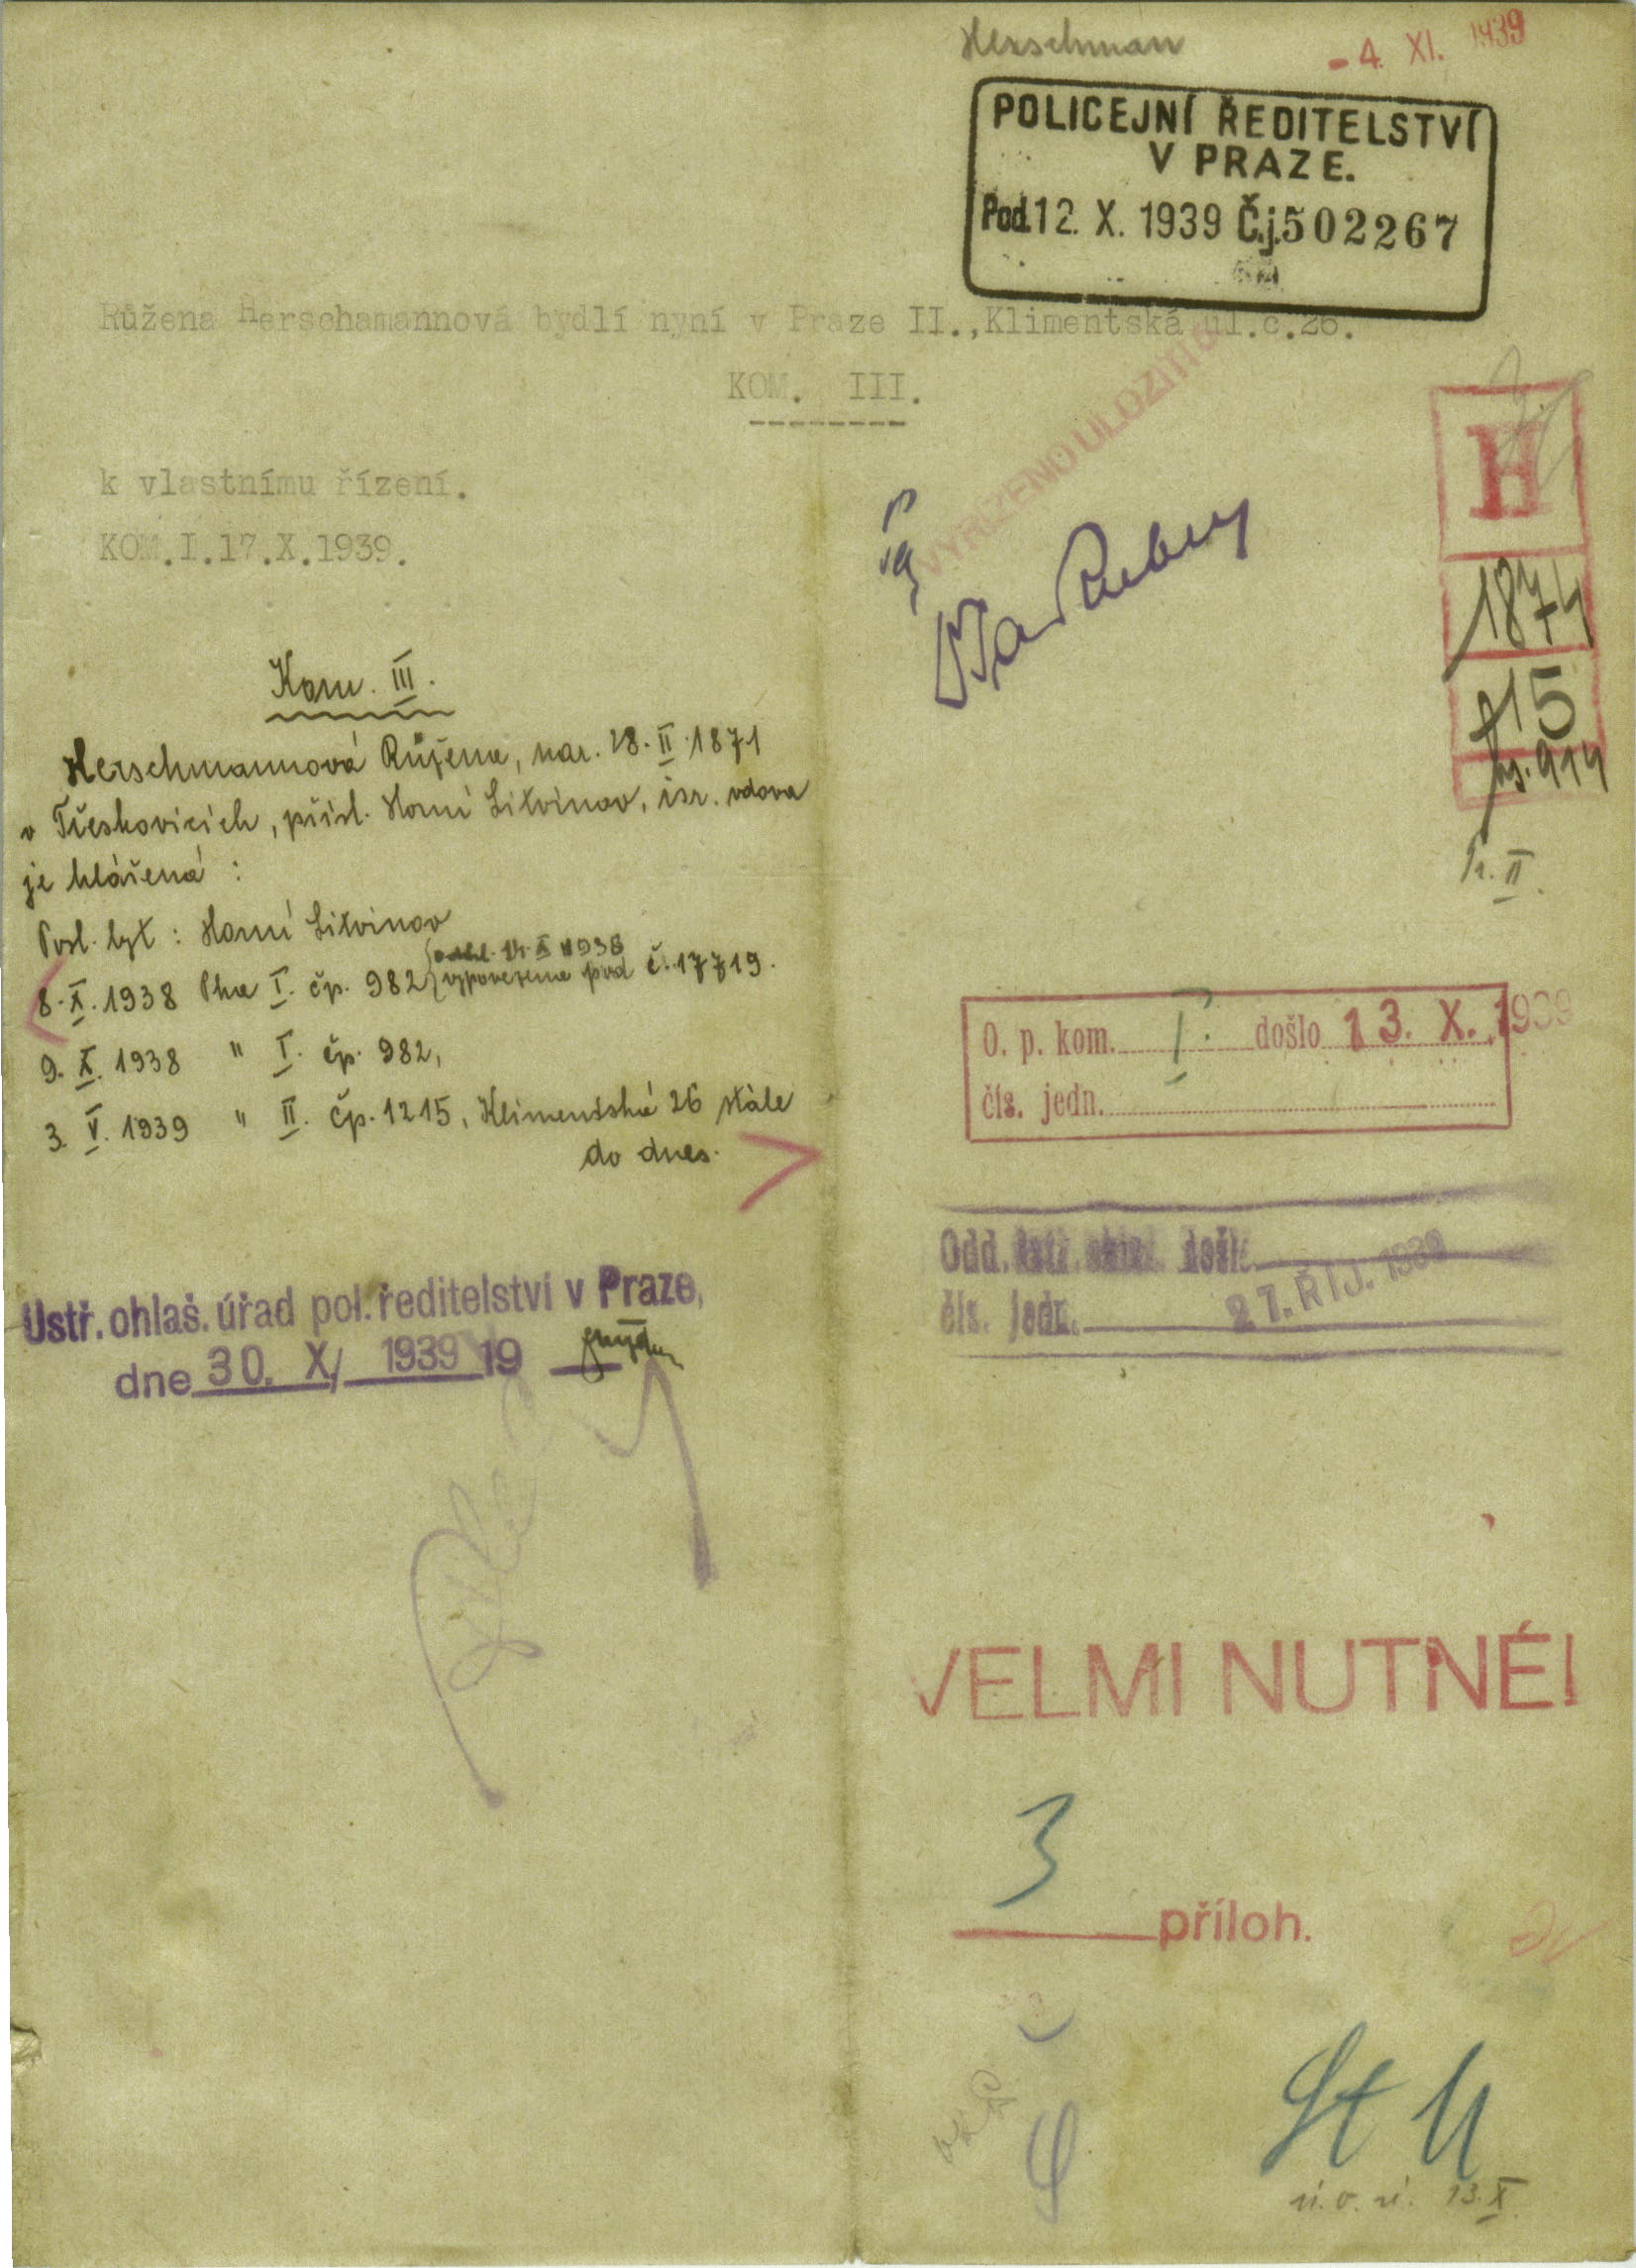 Herschman
- 4. XI. 1939
POLICEJNÍ ŘEDITELSTVÍ
V PRAZE.
Pod. 12. X. 1939 Č.j. 502267
Růžena Herschamannová bydlí nyní v Praze II., Klimentská ul.č.26.
KOM. III.
VYŘÍZENO ULOŽITI
k vlastnímu řízení.
KOM.I.17.X.1939.
H
1874
15
914
Kom. III.
Herschmannová Růžena, nar. 28. II. 1871
v Třeskovicích, přísl. Horní Litvínov, isr. vdova
je hlášená :
Posl. byt : Horní Litvínov
8. X. 1938 Pha I. čp. 982 1938 vypovezena pod č. 17719.
9. X. 1938 " I. čp. 982,
3. V. 1939 " II. čp. 1215, Klimentská 26 stále
do dnes.
O. p. kom. I. došlo 13. X. 1939
čís. jedn.
Odd. došlo
čís. jedn. 27. ŘÍJ. 1939
Ustř. ohlaš. úřad pol. ředitelství v Praze,
dne 30. X/ 1939 19
VELMI NUTNÉ!
3 příloh.
St U
ú. o. ú. 13. X.